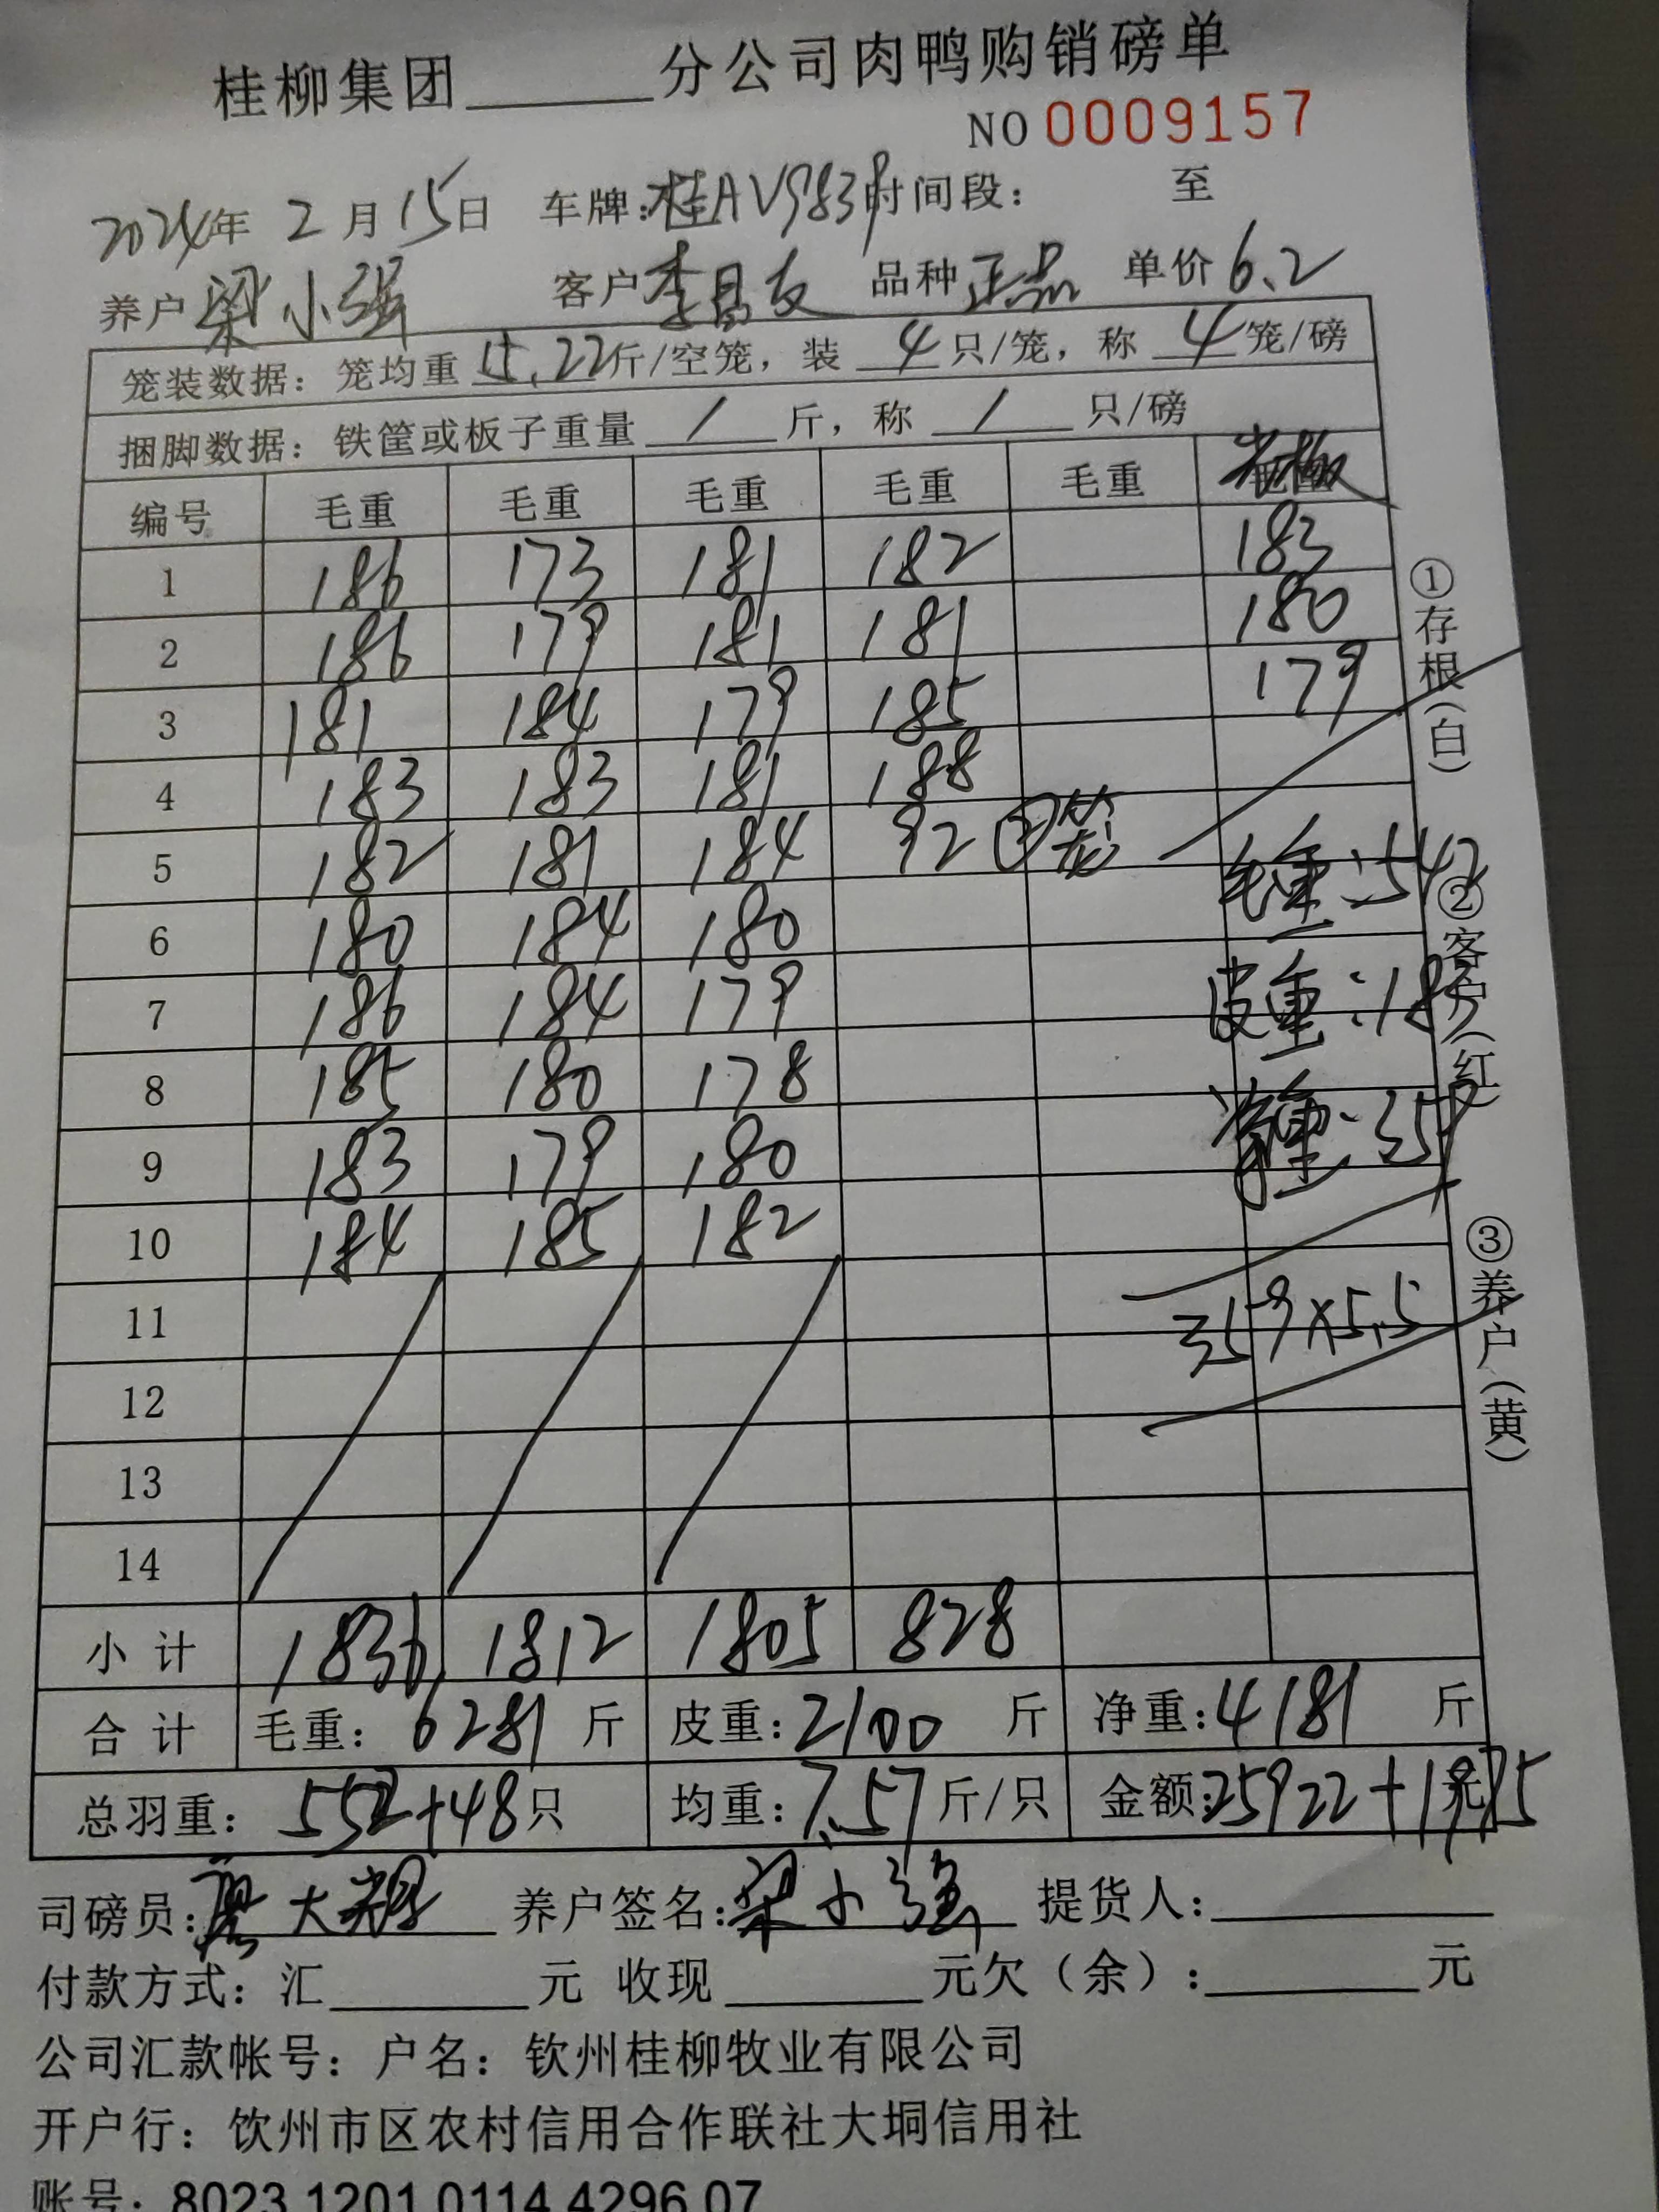 桂柳集团______分公司肉鸭购销磅单
NO 0009157
2024年 2月15日 车牌:桂AV9839 时间段: 至
养户 梁小强 客户 李昌友 品种 正品 单价 6.2
笼装数据: 笼均重 15.22 斤/空笼, 装 4 只/笼, 称 4 笼/磅
捆脚数据: 铁筐或板子重量 / 斤, 称 / 只/磅
编号 毛重 毛重 毛重 毛重 毛重
1 186 173 181 182 183
2 186 179 181 181 180
3 181 184 179 185 179
4 183 183 181 188
5 182 181 184 92 ②笼
毛重:542
6 180 184 180
7 186 184 179
皮重:183
8 185 180 178
9 183 179 180
重:359
10 184 185 182
11
359×5.5
12
13
14
小计 1836 1812 1805 828
合计 毛重: 6281 斤 皮重: 2100 斤 净重: 4181 斤
总羽重: 552+48只 均重: 7.57 斤/只 金额: 25922+1975 元
司磅员: 大 养户签名: 梁小强 提货人:
付款方式: 汇______元 收现______元欠(余):______元
公司汇款帐号: 户名: 钦州桂柳牧业有限公司
开户行: 钦州市区农村信用合作联社大垌信用社
账号: 8023 1201 0114 4296 07
①存根(白)
②客户(红)
③养户(黄)